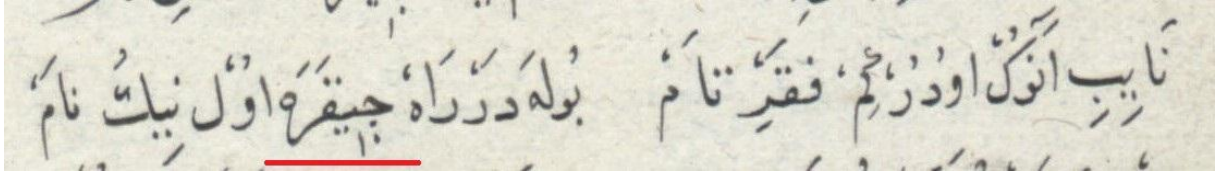 نَايِبِ اَنُوكْ اودُرْكِمْ فَقْرِ تَامْ بُولَه دَرْرَاهْ جِيقَرَه اوُلْ نِيكُ نَامْ